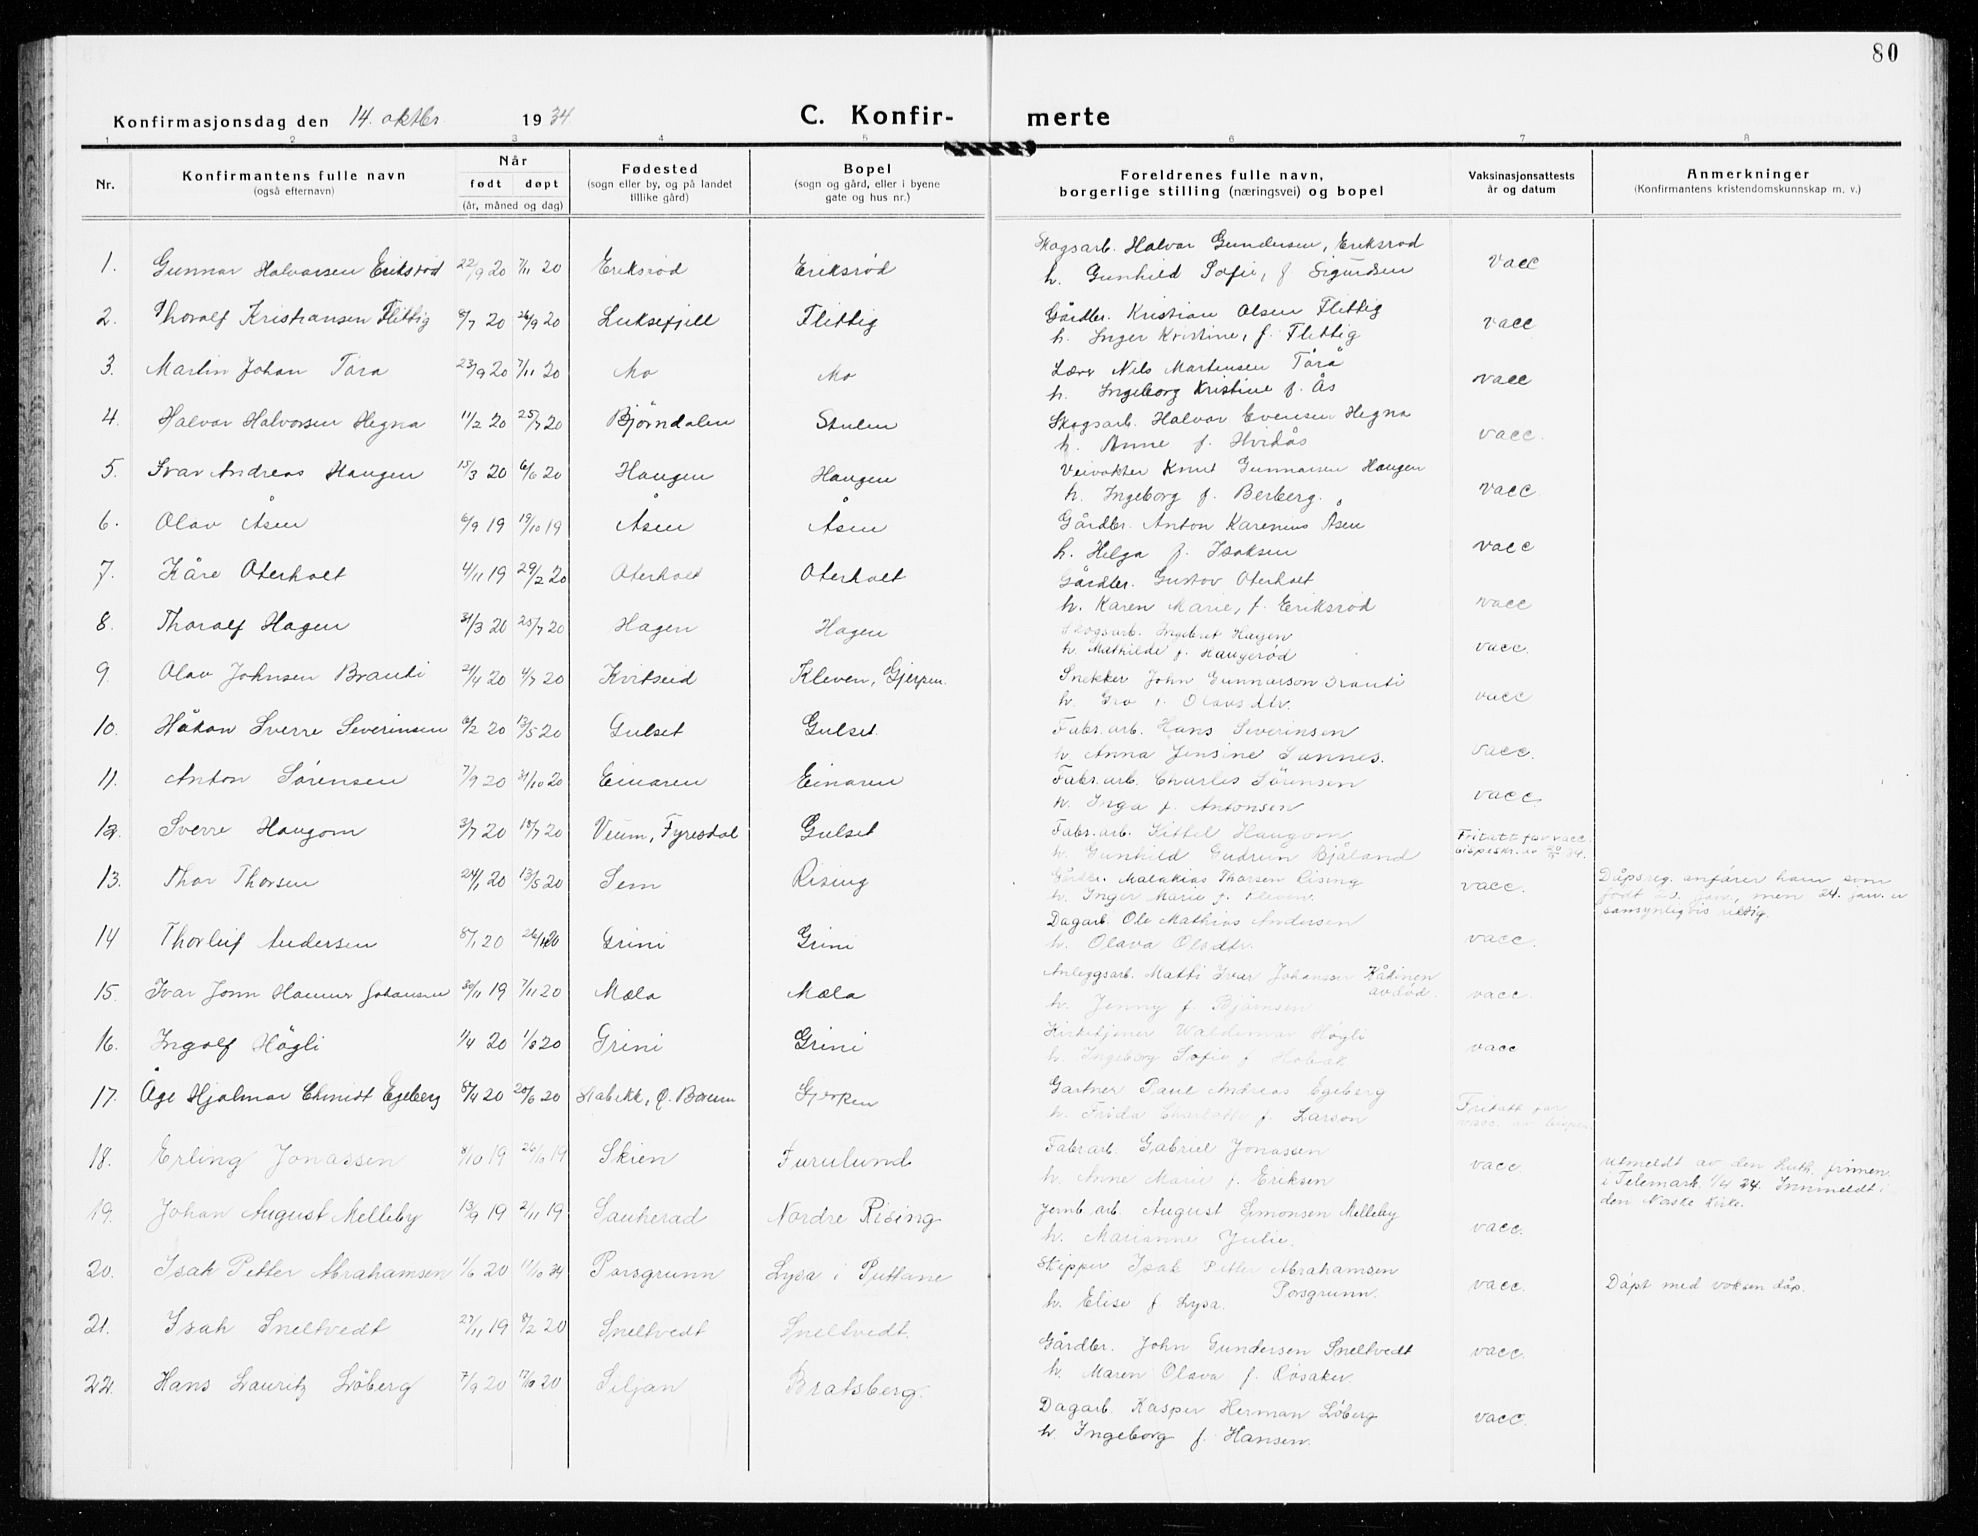 80
Konfirmasjonsdag den 14. oktbr. 1934
C. Konfir-merte
1 2 3 4 5 6 7 8
Nr.
Konfirmantens fulle navn
(også efternavn)
Når
født døpt
(år, måned og dag)
Fødested
(sogn eller by, og på landet
tillike gård)
Bopel
(sogn og gård, eller i byene
gate og hus nr.)
Foreldrenes fulle navn,
borgerlige stilling (næringsvei) og bopel
Vaksinasjonsattests
år og datum
Anmerkninger
(Konfirmantens kristendomskunnskap m. v.)
1. Gunnar Halvorsen Eriksrød 22/9 20 7/11 20 Eriksrød Eriksrød Skogsarb. Halvor Gundersen, Eriksrød vacc
h. Gunhild Sofie, f. Sigurdsen
2. Thoralf Kristiansen Flittig 8/7 20 26/9 20 Luksefjell Flittig Gårdbr. Kristian Olsen Flittig vacc
h. Inger Kristine, f. Flittig
3. Martin Johan Tårå 23/9 20 7/11 20 Mo Mo Lærer Nils Martensen Tårå vacc
h. Ingeborg Kristine f. Ås
4. Halvor Halvorsen Hegna 11/2 20 25/7 20 Bjørndalen Stulen Skogsarb. Halvor Evensen Hegna vacc.
h. Anne f. Hvidås
5. Ivar Andreas Haugen 15/3 20 6/6 20 Haugen Haugen Veivokter Knut Gunnarsen Haugen vacc.
h. Ingeborg f. Berberg.
6. Olav Åsen 6/9 19 19/10 19 Åsen Åsen Gårdbr. Anton Karenius Åsen vacc
h. Helga f. Isaksen
7. Kåre Oterholt 4/11 19 29/2 20 Oterholt Oterholt Gårdbr. Gustav Oterholt vacc
h. Karen Marie, f. Eriksrød
8. Thoralf Hagen 31/3 20 25/7 20 Hagen Hagen Skogsarb. Ingebret Hagen vacc.
h. Mathilde f. Haugerød
9. Olav Johnsen Brauti 21/4 20 4/7 20 Kvitseid Kleven, Gjerpen. Snekker John Gunnarson Brauti vacc
h. Gro f. Olavsdtr.
10. Håkon Sverre Severinsen 6/2 20 13/5 20 Gulset Gulset Fabr.arb. Hans Severinsen vacc.
h. Anna Jensine Sannes.
11. Anton Sørensen 7/9 20 31/10 20 Einaren Einaren Fabr.arb. Charles Sørensen vacc
h. Inga f. Antonsen
12. Sverre Haugom 3/7 20 18/7 20 Veum, Fyresdal Gulset Fabr.arb. Kittel Haugom Fritatt for vacc.
h. Gunhild Gudrun Bjåland
13. Thor Thorsen 24/1 20 13/5 20 Sem Rising Gårdbr. Malakias Thorsen Rising vacc. Dåpsreg. anfører ham som
h. Inger Marie f. Kleven. født 23. jan., men 24. jan. er
sansynligvis riktig.
14 Thorleif Andersen 8/1 20 Grini Grini Dagarb. Ole Mathias Andersen vacc.
h. Olava Olsdtr.
15. Ivar John Hamer Johansen 30/11 19 7/11 20 Mæla Mæla Anleggsarb. Matti Ivar Johansson vacc.
avdød.
h. Jenny f. Bjørnsen
16. Ingolf Høgli 1/4 20 1/8 20 Grini Grini Kirketjener Waldemar Høgli vacc
h. Ingeborg Sofie f.
17. Åge Hjalmar Chmidt Egeberg 8/4 20 20/6 20 Stabekk, Ø. Bærum Gjerpen Gartner Paul Andreas Egeberg Fritatt for
h. Frida Charlotte f. Larson vacc. av bispen
18. Erling Jonassen 8/10 19 26/10 19 Skien Furulund Fabr.arb. Gabriel Jonassen vacc. utmeldt av den luth. frimen.
h. Anne Marie f. Eriksen i Telemark 34. Innmeldt i
den Norske Kirke.
19. Johan August Melleby 13/9 19 2/11 19 Sauherad Nordre Rising Jernb.arb. August Simonsen Melleby vacc.
h. Marianne Julie.
20. Isak Petter Abrahamsen 1/6 20 34 Porsgrunn Lysa i Puttane Skipper Isak Petter Abrahamsen vacc. Døpt med voksen dåp.
Porsgrunn.
h. Elise f. Lysa.
21. Isak Sneltvedt 27/11 19 8/2 20 Sneltvedt Sneltvedt. Gårdbr. John Gundersen Sneltvedt vacc.
h. Maren Olava f. Røsaker
22. Hans Lauritz Løberg 7/9 20 17/10 20 Siljan Bratsberg. Dagarb. Kasper Herman Løberg vacc.
h. Ingeborg f. Hansen.